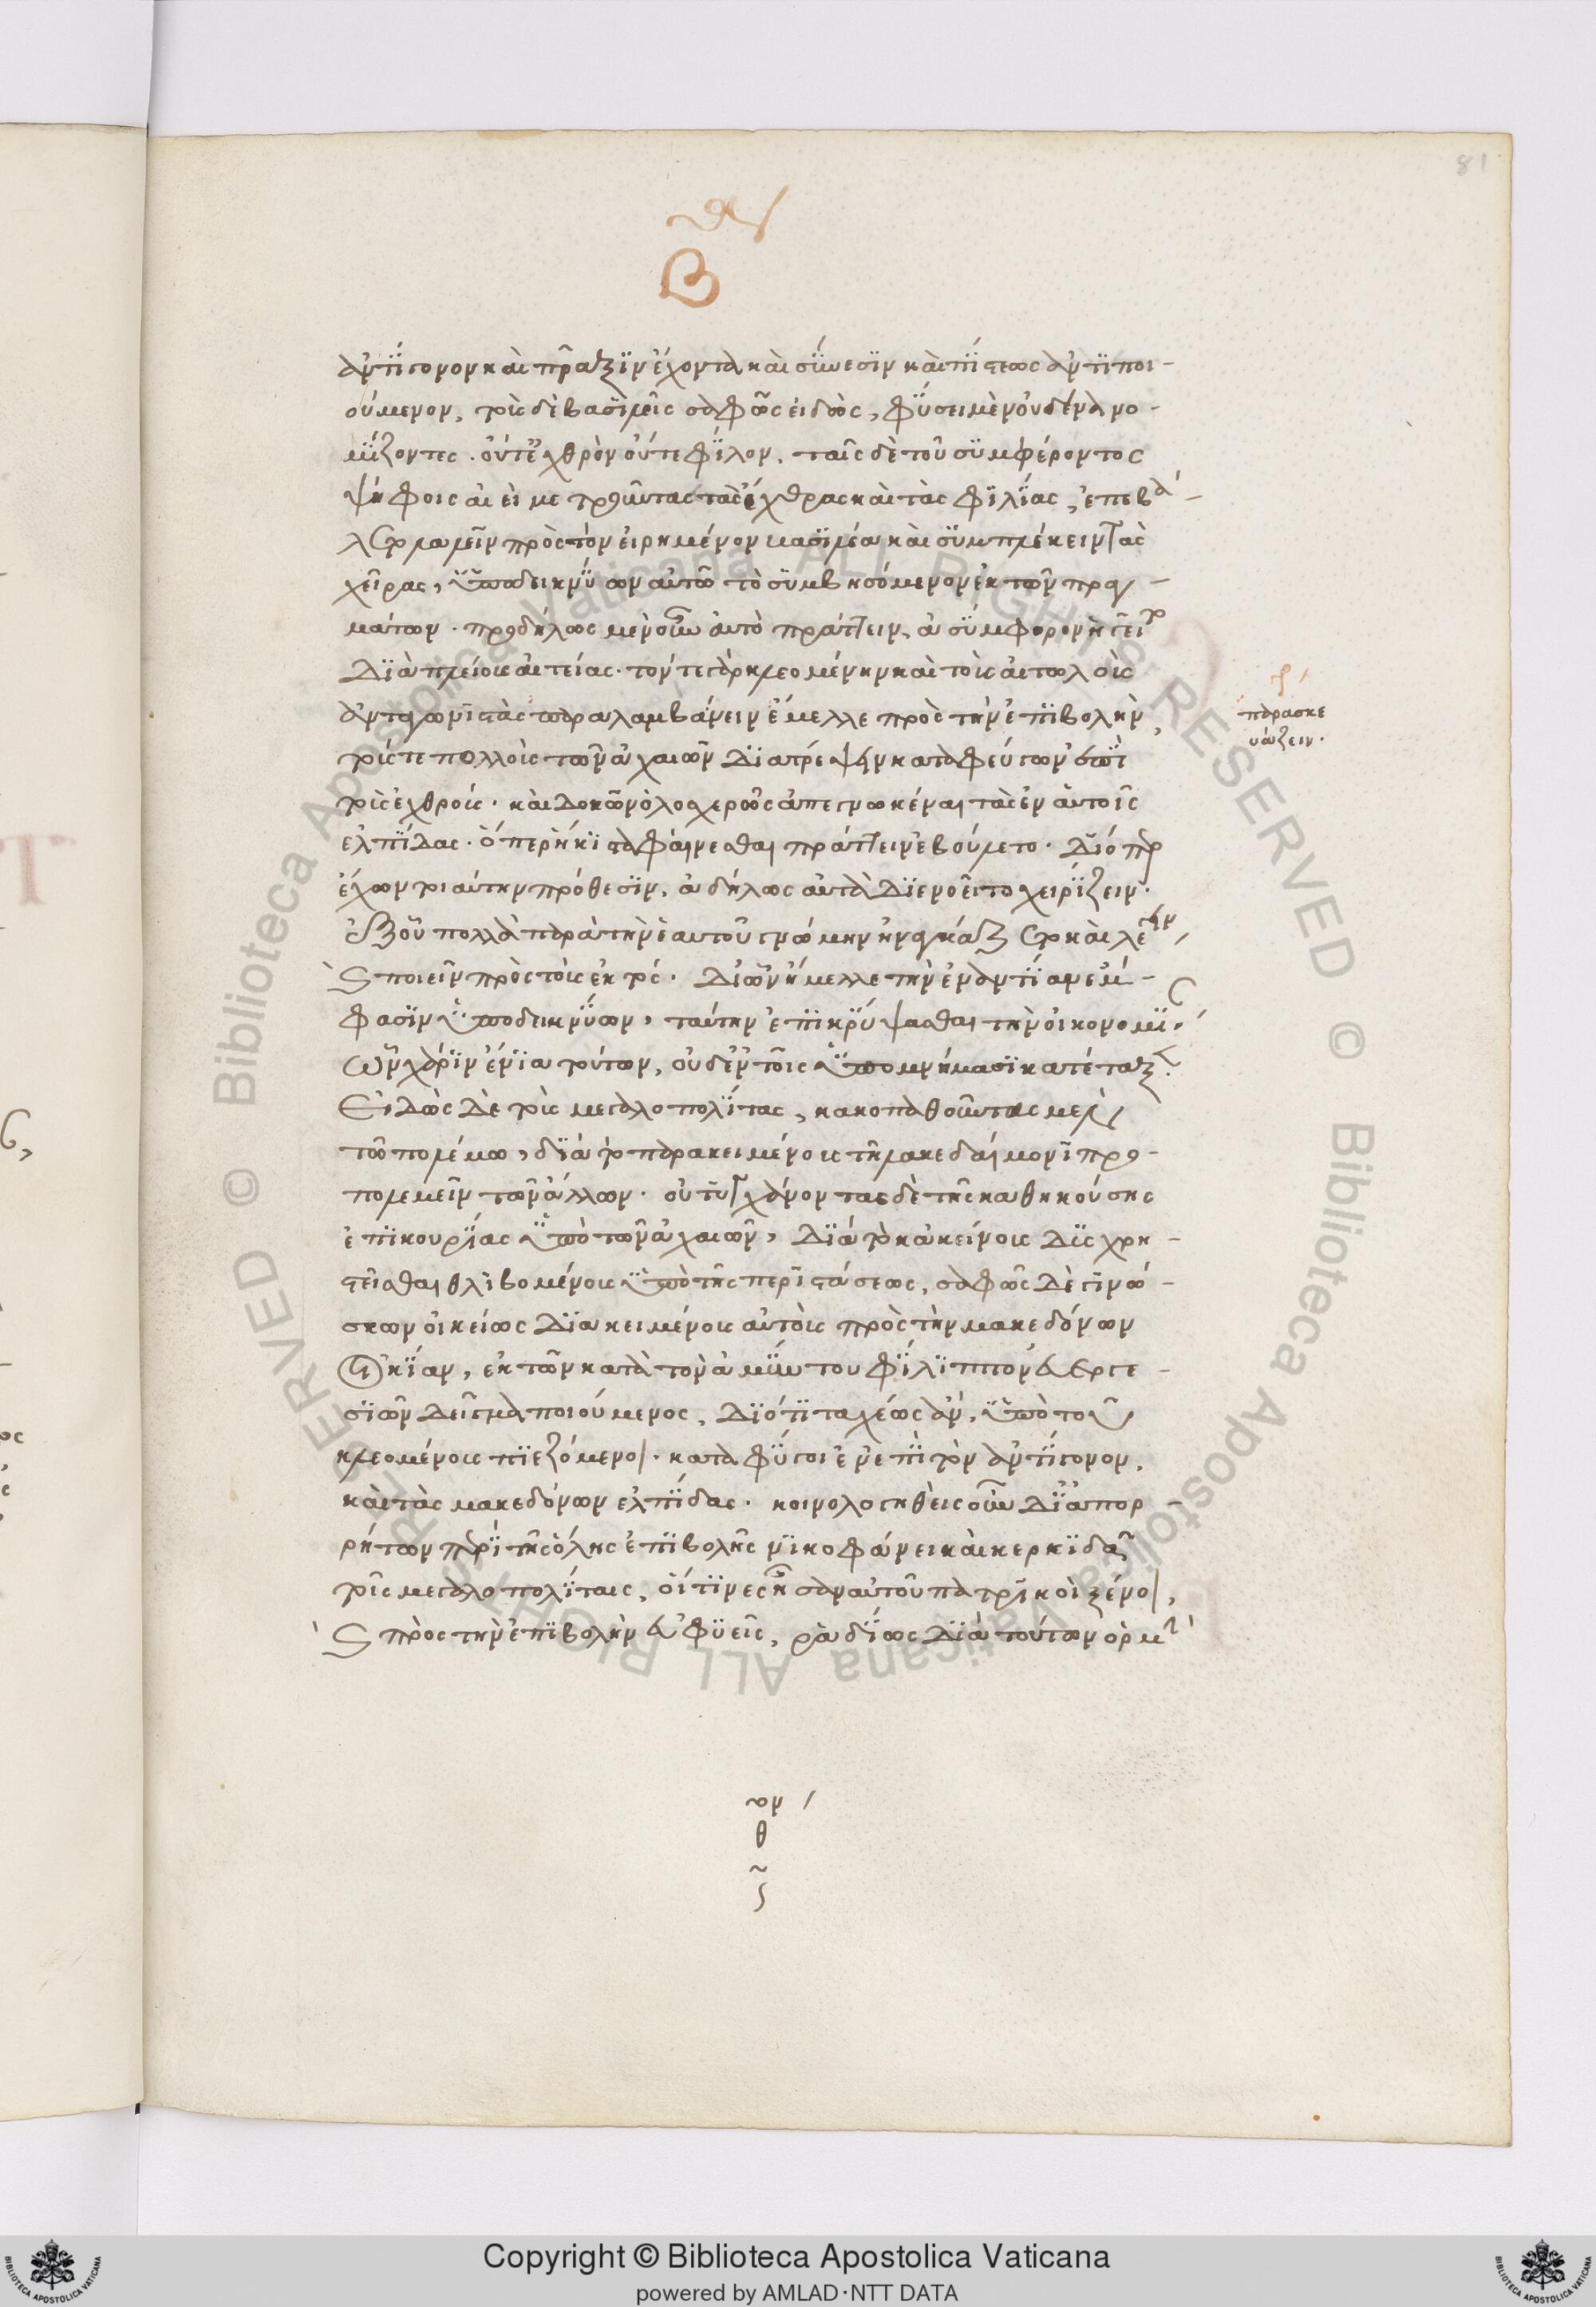 81
Β
ἀντίγονον καὶ πρᾶξιν ἔχοντα καὶ σύνεσιν καὶ πίστεως ἀντιποι-
ούμενον, τοὺς δὲ βασιλεῖς σαφῶς εἰδὼς, φύσει μὲν οὐδένα νο-
μίζοντες. οὔτε ἐχθρὸν οὔτε φίλον, ταῖς δὲ τοῦ συμφέροντος
ψήφοις αἰεὶ μετροῦντας τὰς ἔχθρας καὶ τὰς φιλίας, ἐπεβά-
λετο λαλεῖν πρὸς τὸν εἰρημένον βασιλέα καὶ συμπλέκειν τὰς
χεῖρας, ὑποδεικνύων αὐτῷ τὸ συμβησόμενον ἐκ τῶν πραγ-
μάτων. προδήλως μὲν οὖν αὐτὸ πράττειν, ἀσύμφορον ἡγεῖτο
διὰ πλείους αἰτείας. τόν τε γὰρ κλεομένην καὶ τοὺς αἰτωλοὺς
ἀνταγωνιστὰς παραλαμβάνειν ἔμελλε πρὸς τὴν ἐπιβολὴν,
τούς τε πολλοὺς τῶν ἀχαιῶν διατρέψειν καταφεύγων ἐπὶ
τοὺς ἐχθροὺς. καὶ δοκῶν ὁλοσχερῶς ἀπεγνωκέναι τὰς ἐν αὐτοῖς
ἐλπίδας. ὅπερ ἥκιστα φαίνεσθαι πράττειν ἐβούλετο. διόπερ
ἔχων τοιαύτην πρόθεσιν, ἀδήλως αὐτὰ διενοεῖτο χειρίζειν.
ἐξ οὗ πολλὰ παρὰ τὴν ἑαυτοῦ γνώμην ἠναγκάζετο καὶ λέγειν
καὶ ποιεῖν πρὸς τοὺς ἐκτὸς. δι' ὧν ἤμελλε τὴν ἐναντίαν ἔμ-
φασιν ὑποδεικνύων, ταύτην ἐπικρύψασθαι τὴν οἰκονομίαν
ὧν χάριν ἔνια τούτων, οὐδ' ἐν τοῖς ὑπομνήμασι κατέταξεν.
Εἰδὼς δὲ τοὺς μεγαλοπολίτας, κακοπαθοῦντας μὲν
τῷ πολέμῳ, διὰ τὸ παρακειμένους τῇ λακεδαίμονι προ-
πολεμεῖν τῶν ἄλλων. οὐ τυγχάνοντας δὲ τῆς καθηκούσης
ἐπικουρίας ὑπὸ τῶν ἀχαιῶν, διὰ τὸ κἀκείνους δυσχρη-
στεῖσθαι θλιβομένους ὑπὸ τῆς περιστάσεως, σαφῶς δὲ γινώ-
σκων οἰκείως διακειμένους αὐτοὺς πρὸς τὴν μακεδόνων
οἰκίαν, ἐκ τῶν κατὰ τὸν ἀμύντου φίλιππον εὐεργε-
σιῶν δεῖγμα ποιούμενος, διότι ταχέως ἂν, ὑπὸ τοῦ
κλεομένους πιεζόμενοι. καταφύγοιεν ἐπὶ τὸν ἀντίγονον,
καὶ τὰς μακεδόνων ἐλπίδας. κοινολογηθεὶς οὖν δι' ἀπορ-
ρήτων περὶ τῆς ὅλης ἐπιβολῆς νικοφάνει καὶ κερκιδᾷ
τοῖς μεγαλοπολίταις, οἵτινες ἦσαν αὐτοῦ πατρικοὶ ξένοι,
καὶ πρὸς τὴν ἐπιβολὴν εὐφυεῖς, ῥᾳδίως διὰ τούτων ὁρμὴν
παρασκε
υάζειν.
ον
θ
Copyright © Biblioteca Apostolica Vaticana
powered by AMLAD·NTT DATA